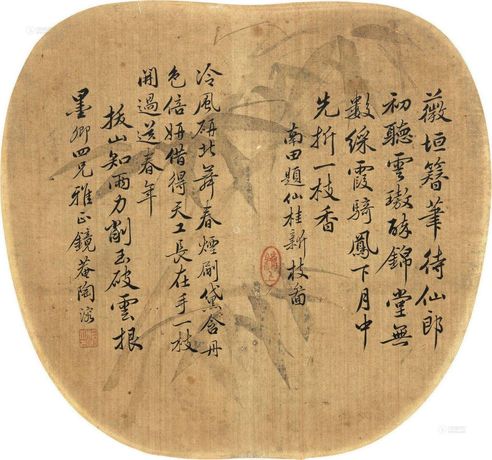 薇垣簪筆待仙郎
初聽雲璈醉錦堂無
數綵霞騎鳳下月中
先折一枝香
南田題仙桂新枝圖
冷風研北舞春煙刷黛含丹
色倍妍借得天工長在手一枝
開過送春年
拔山知雨力削玉破雲根
墨卿四兄雅正鏡菴陶溶